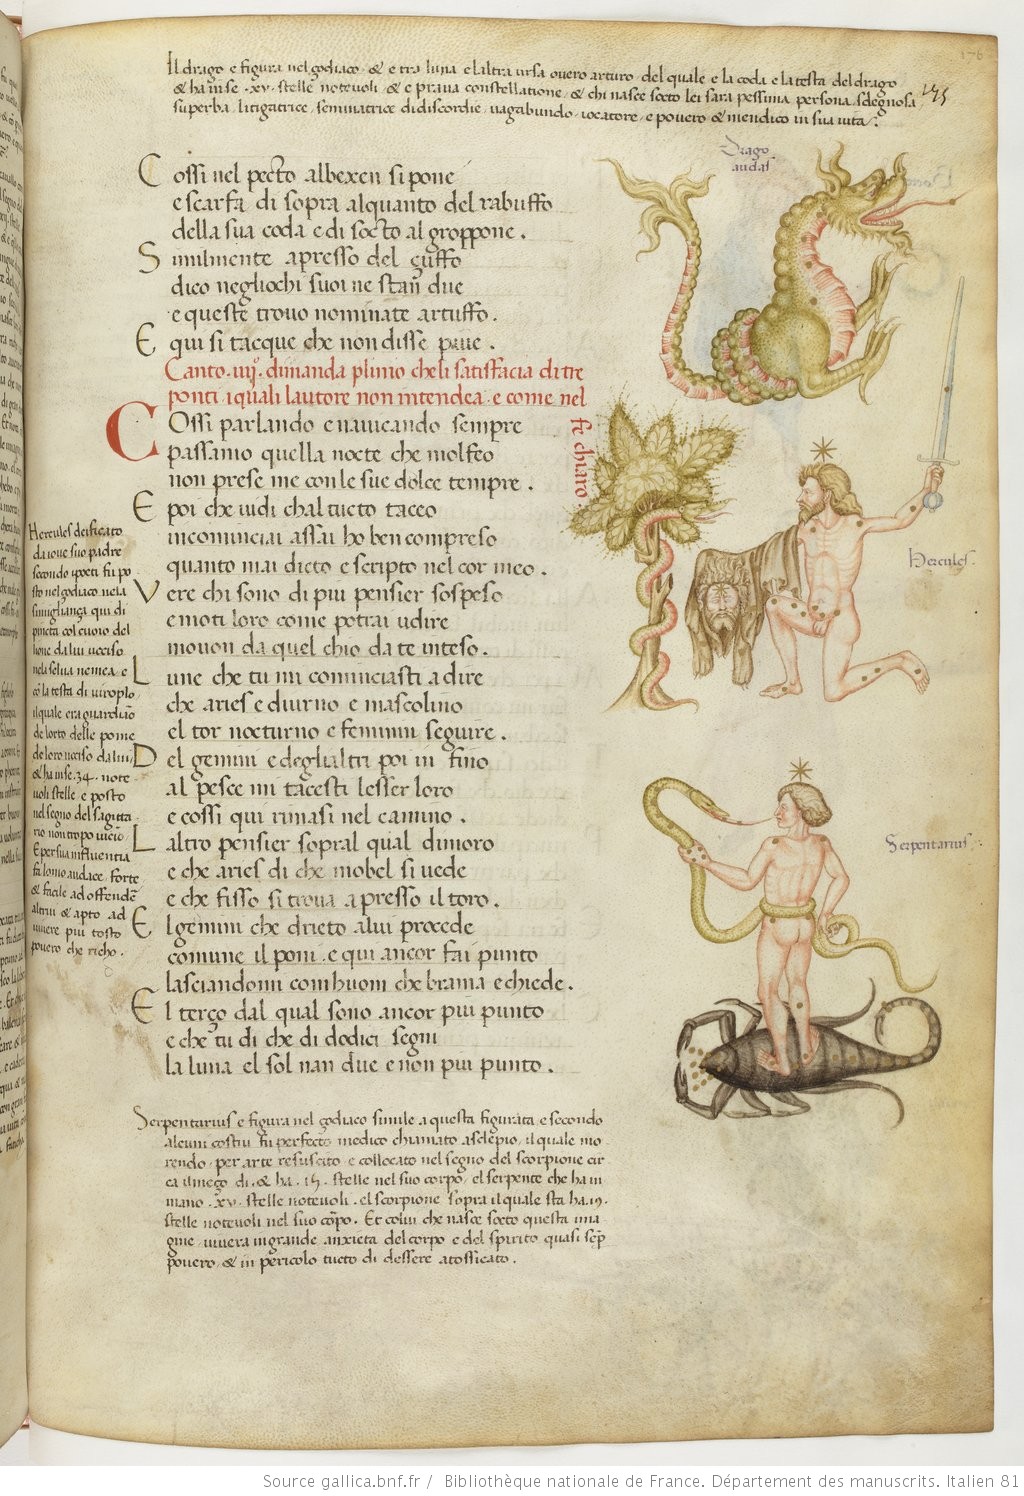 Il drago e figura nel zodiaco · & e tra luna e laltra ursa overo arturo · del quale e la coda e la testa del drago
& ha in se · xv · stelle notevoli · & e prava constellatione · & chi nasce socto lei sara pessima persona · sdegnosa
superba · litigatrice · seminatrice di discordie · vagabundo · iocatore · e povero & mendico in sua vita ·
175
Drago
audas
Cossi nel pecto albexen si pone
e scarfa di sopra alquanto del rabuffo
della sua coda e di socto al groppone .
Similmente apresso del zuffo
dico negliochi suoi ne stan due
e queste trovo nominate artuffo .
E qui si tacque che non disse piue .
Canto · iiij · dimanda plinio che li satisfacia di tre
ponti i quali lautore non intendea · e come nel
fe chiaro
Cossi parlando e navicando sempre
passamo quella nocte che molfeo
non prese me con le sue dolce tempre .
E poi che vidi chal tucto taceo
incominciai assai ho ben compreso
quanto mai dicto e scripto nel cor meo .
Vere chi sono di piu pensier sospeso
e moti loro come potrai udire
movon da quel chio da te inteso .
Lune che tu mi cominciasti a dire
che aries e diurno e mascolino
el tor nocturno e feminin seguire .
Del gemini e deglialtri poi in fino
al pesce mi tacesti lesser loro
e cossi qui rimasi nel camino .
Laltro pensier sopral qual dimoro
e che aries di che mobel si vede
e che fisso si trova apresso il toro .
El gemini che drieto alui procede
comune il poni · e qui ancor fai punto
lasciandomi com huom che brama e chiede .
El terzo dal qual sono ancor piu punto
e che tu di che di dodici segni
la luna el sol nan due e non piu punto .
Hercules deificato
da iove suo padre
secondo i poeti fu po
sto nel zodiaco nela
similianza qui di
pincta col cuoio del
lione da lui ucciso
nela selva nemea · e
co la testa di
il quale era guardiano
de lorto delle pome
de loro ucciso da lui
& ha in se · 34 · note
voli stelle e posto
nel segno del sagitta
rio non tropo vicino
E per sua influentia
fa lomo audace · forte
& facile ad offendere
altrui & apto ad
vivere piu tosto
povero che richo .
Hercules .
Serpentarius .
Serpentarius e figura nel zodiaco simile a questa figurata e secondo
alcuni costui fu perfecto medico chiamato asclepio · il quale mo
rendo · per arte resuscito e collocato nel segno del scorpione cir
ca il mezo di · & ha · 15 · stelle nel suo corpo · el serpente che ha in
mano · xv · stelle notevoli · el scorpione sopra il quale sta ha · 19 ·
stelle notevoli nel suo corpo . Et colui che nasce socto questa ima
gine · vivera in grande anxieta del corpo e del spirito quasi semp
povero · & in pericolo tucto di dessere atossicato .
Source gallica.bnf.fr / Bibliothèque nationale de France. Département des manuscrits. Italien 81